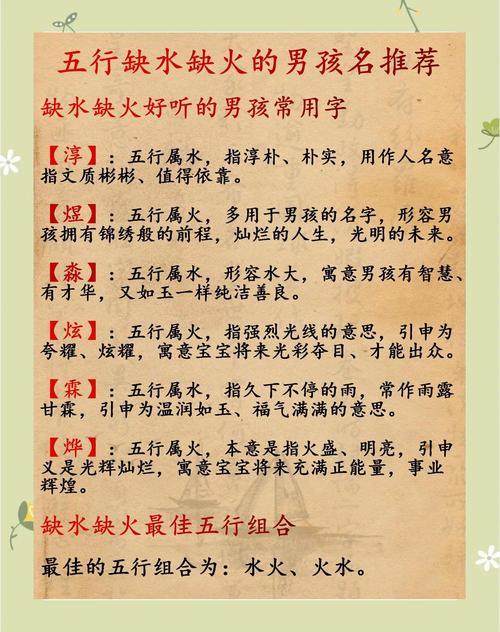 五行缺水缺火的男孩名推荐
缺水缺火好听的男孩常用字
【淳】：五行属水，指淳朴、朴实，用作人名意
指文质彬彬、值得依靠。
【煜】：五行属火，多用于男孩的名字，形容男
孩拥有锦绣般的前程，灿烂的人生，光明的未来。
【淼】：五行属水，形容水大，寓意男孩有智慧、
有才华，又如玉一样纯洁善良。
【炫】：五行属火，指强烈光线的意思，引申为
夸耀、炫耀，寓意宝宝将来光彩夺目、才能出众。
【霖】：五行属水，指久下不停的雨，常作雨露
甘霖，引申为温润如玉、福气满满的意思。
【烨】：五行属火，本意是指火盛、明亮，引申
义是光辉灿烂，寓意宝宝将来充满正能量，事业
辉煌。
缺水缺火最佳五行组合
最佳的五行组合为：水火、火水。